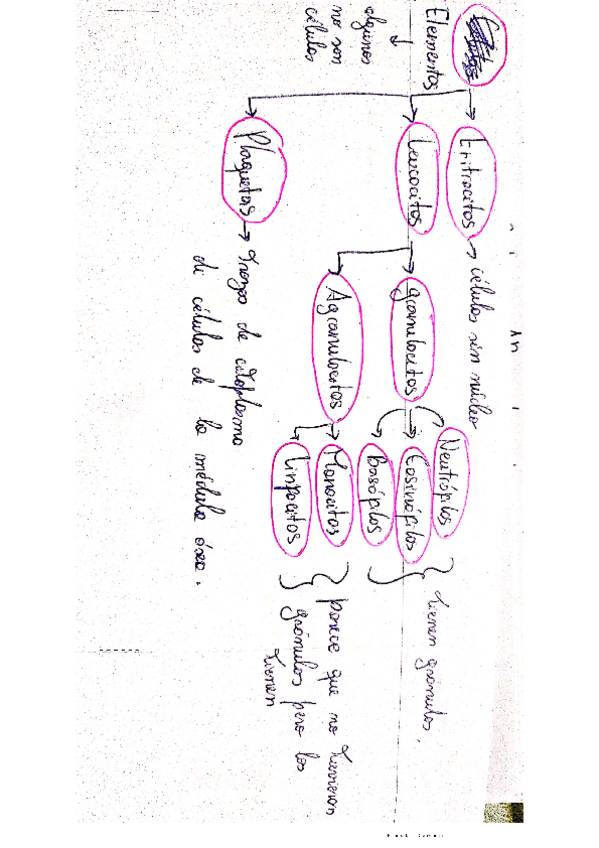 Elementos
algunos
no son
células
Eritrocitos → células sin núcleo
Leucocitos
granulocitos
Neutrófilos
Eosinófilos
Basófilos
tienen gránulos.
Agranulocitos
Monocitos
Linfocitos
parece que no tienen
gránulos pero los
tienen
Plaquetas → trozo de citoplasma
de células de la médula ósea.